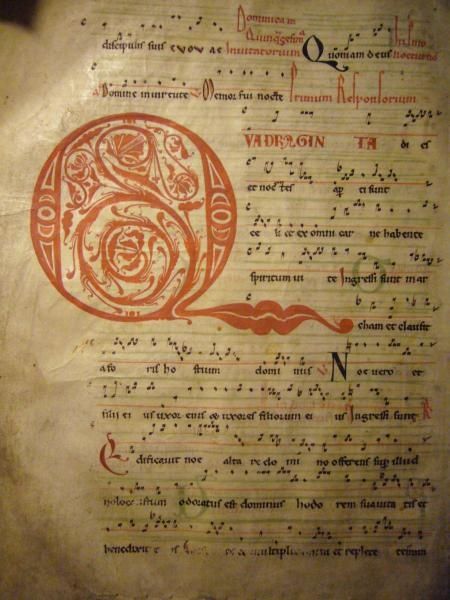 Dominica in
discipulis suis evovae Invitatorium Quoniam deus In Primo nocturno
a Domine in virtute Memor fui nocte Primum Responsorium
QUADRAGINTA dies
et noctes apti sunt
celi et ex omni carne habente
spiritum vite Ingressi sunt in ar
cham et clausit
a foris hostium dominus V Noe vero et
filii eius uxor eius et uxores filiorum eius Ingressi sunt R
Edificavit noe altare domino offerens sup illud
holocaustum odoratus est dominus hodorem suavitatis et
benedixit et multiplicamini et replete terram